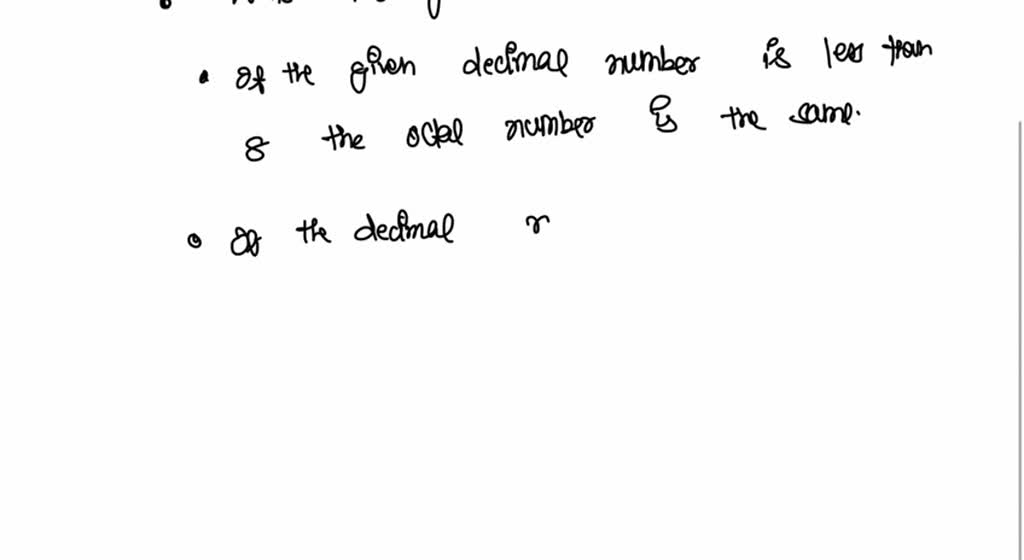 • If the given decimal number is less than
8 the octal number is the same.
• If the decimal n